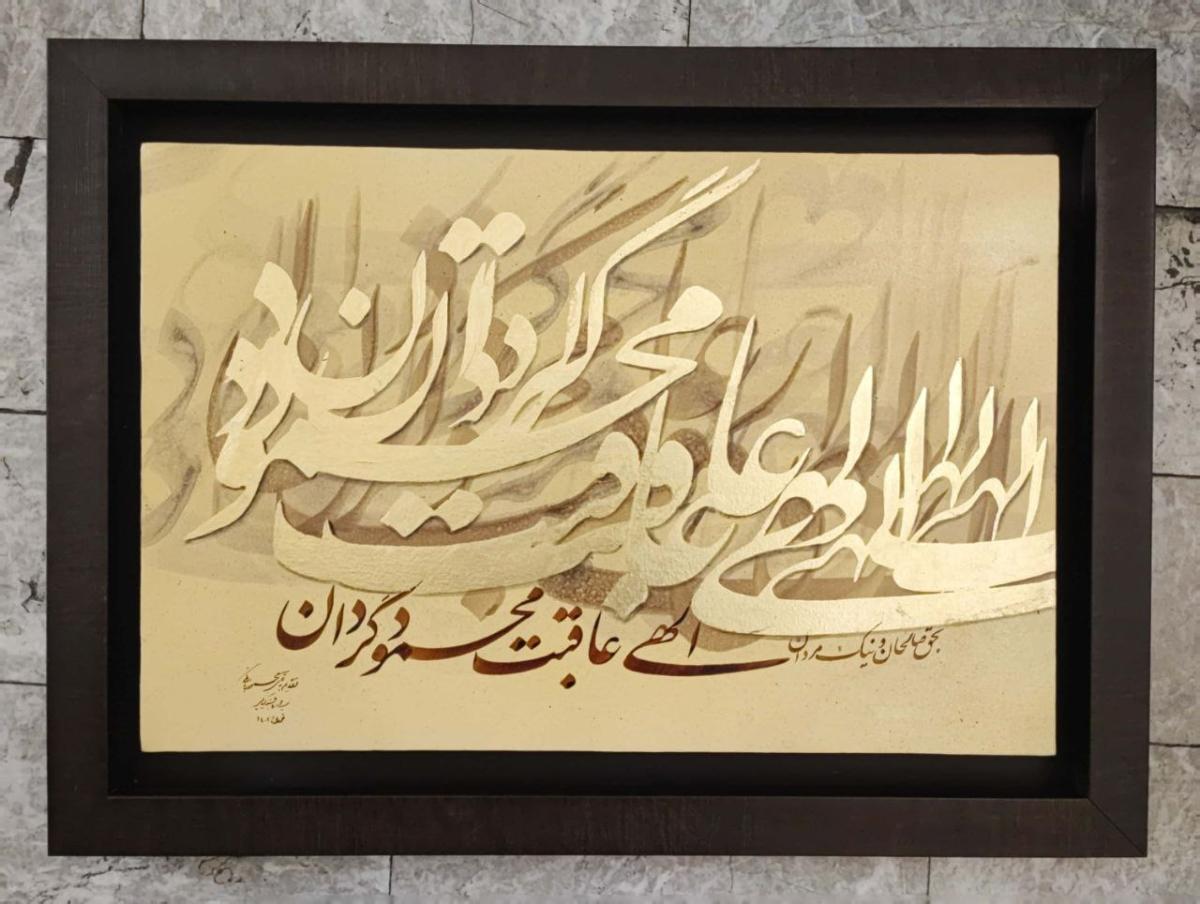 الهی عاقبت محمود گردان
بحق صالحان و نیک مردان
الهی عاقبت محمود گردان